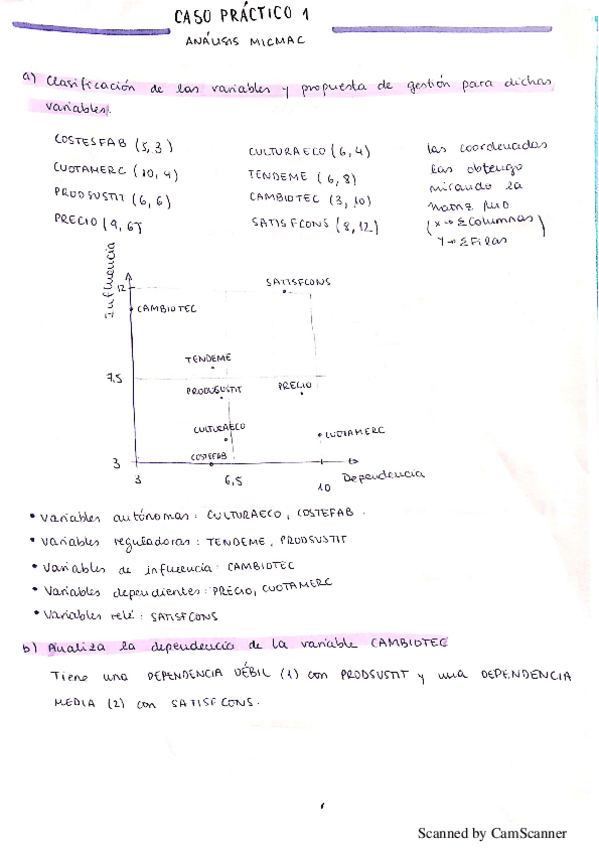 CASO PRÁCTICO 1
ANÁLISIS MICMAC
a) Clasificación de las variables y propuesta de gestión para dichas
variables.
COSTESFAB (5,3)
CUOTAMERC (10,4)
PRODSUSTIT (6,6)
PRECIO (9,6)
CULTURAECO (6,4)
TENDEME (6,8)
CAMBIOTEC (3,10)
SATISFCONS (8,12)
las coordenadas
las obtengo
mirando la
matriz MID
(x → ΣColumnas)
Y → ΣFilas
Influencia
12
SATISFCONS
CAMBIOTEC
TENDEME
7,5
PRODUSUSTIT
PRECIO
CULTURAECO
CUOTAMERC
COSTEFAB
3
3
6,5
10
Dependencia
• Variables autónomas: CULTURAECO, COSTEFAB.
• Variables reguladoras: TENDEME, PRODSUSTIT
• Variables de influencia: CAMBIOTEC
• Variables dependientes: PRECIO, CUOTAMERC
• Variables relé: SATISFCONS
b) Analiza la dependencia de la variable CAMBIOTEC
Tiene una DEPENDENCIA DÉBIL (1) con PRODSUSTIT y una DEPENDENCIA
MEDIA (2) con SATISFCONS.
Scanned by CamScanner